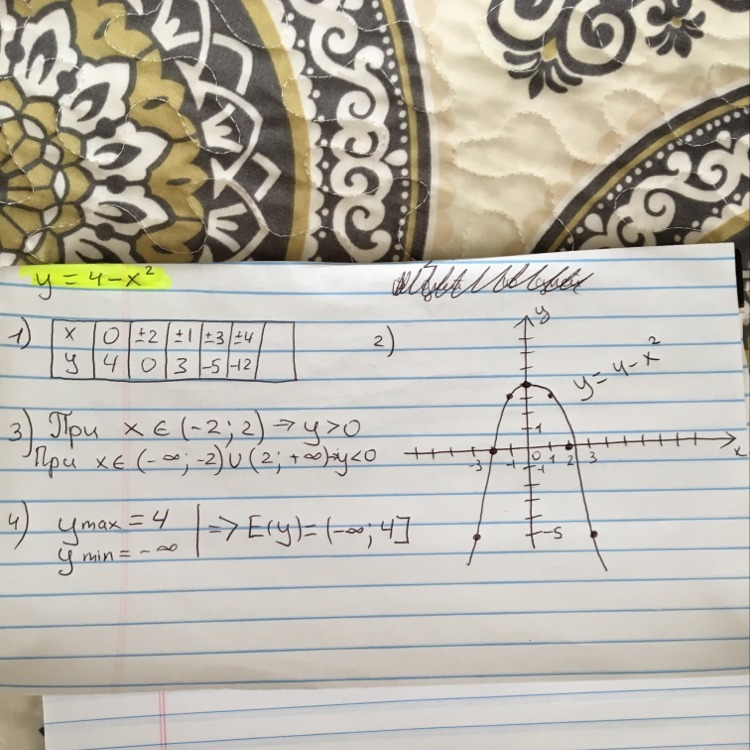 y = 4 - x²
1)
x 0 ±2 ±1 ±3 ±4
y 4 0 3 -5 -12
2)
y
y = 4 - x²
1
-3 -1 0 1 2 3 x
-1
-5
3) При x ∈ (-2; 2) ⇒ y > 0
При x ∈ (-∞; -2) ∪ (2; +∞) ⇒ y < 0
4) y max = 4
y min = -∞ | => E(y) = (-∞; 4]